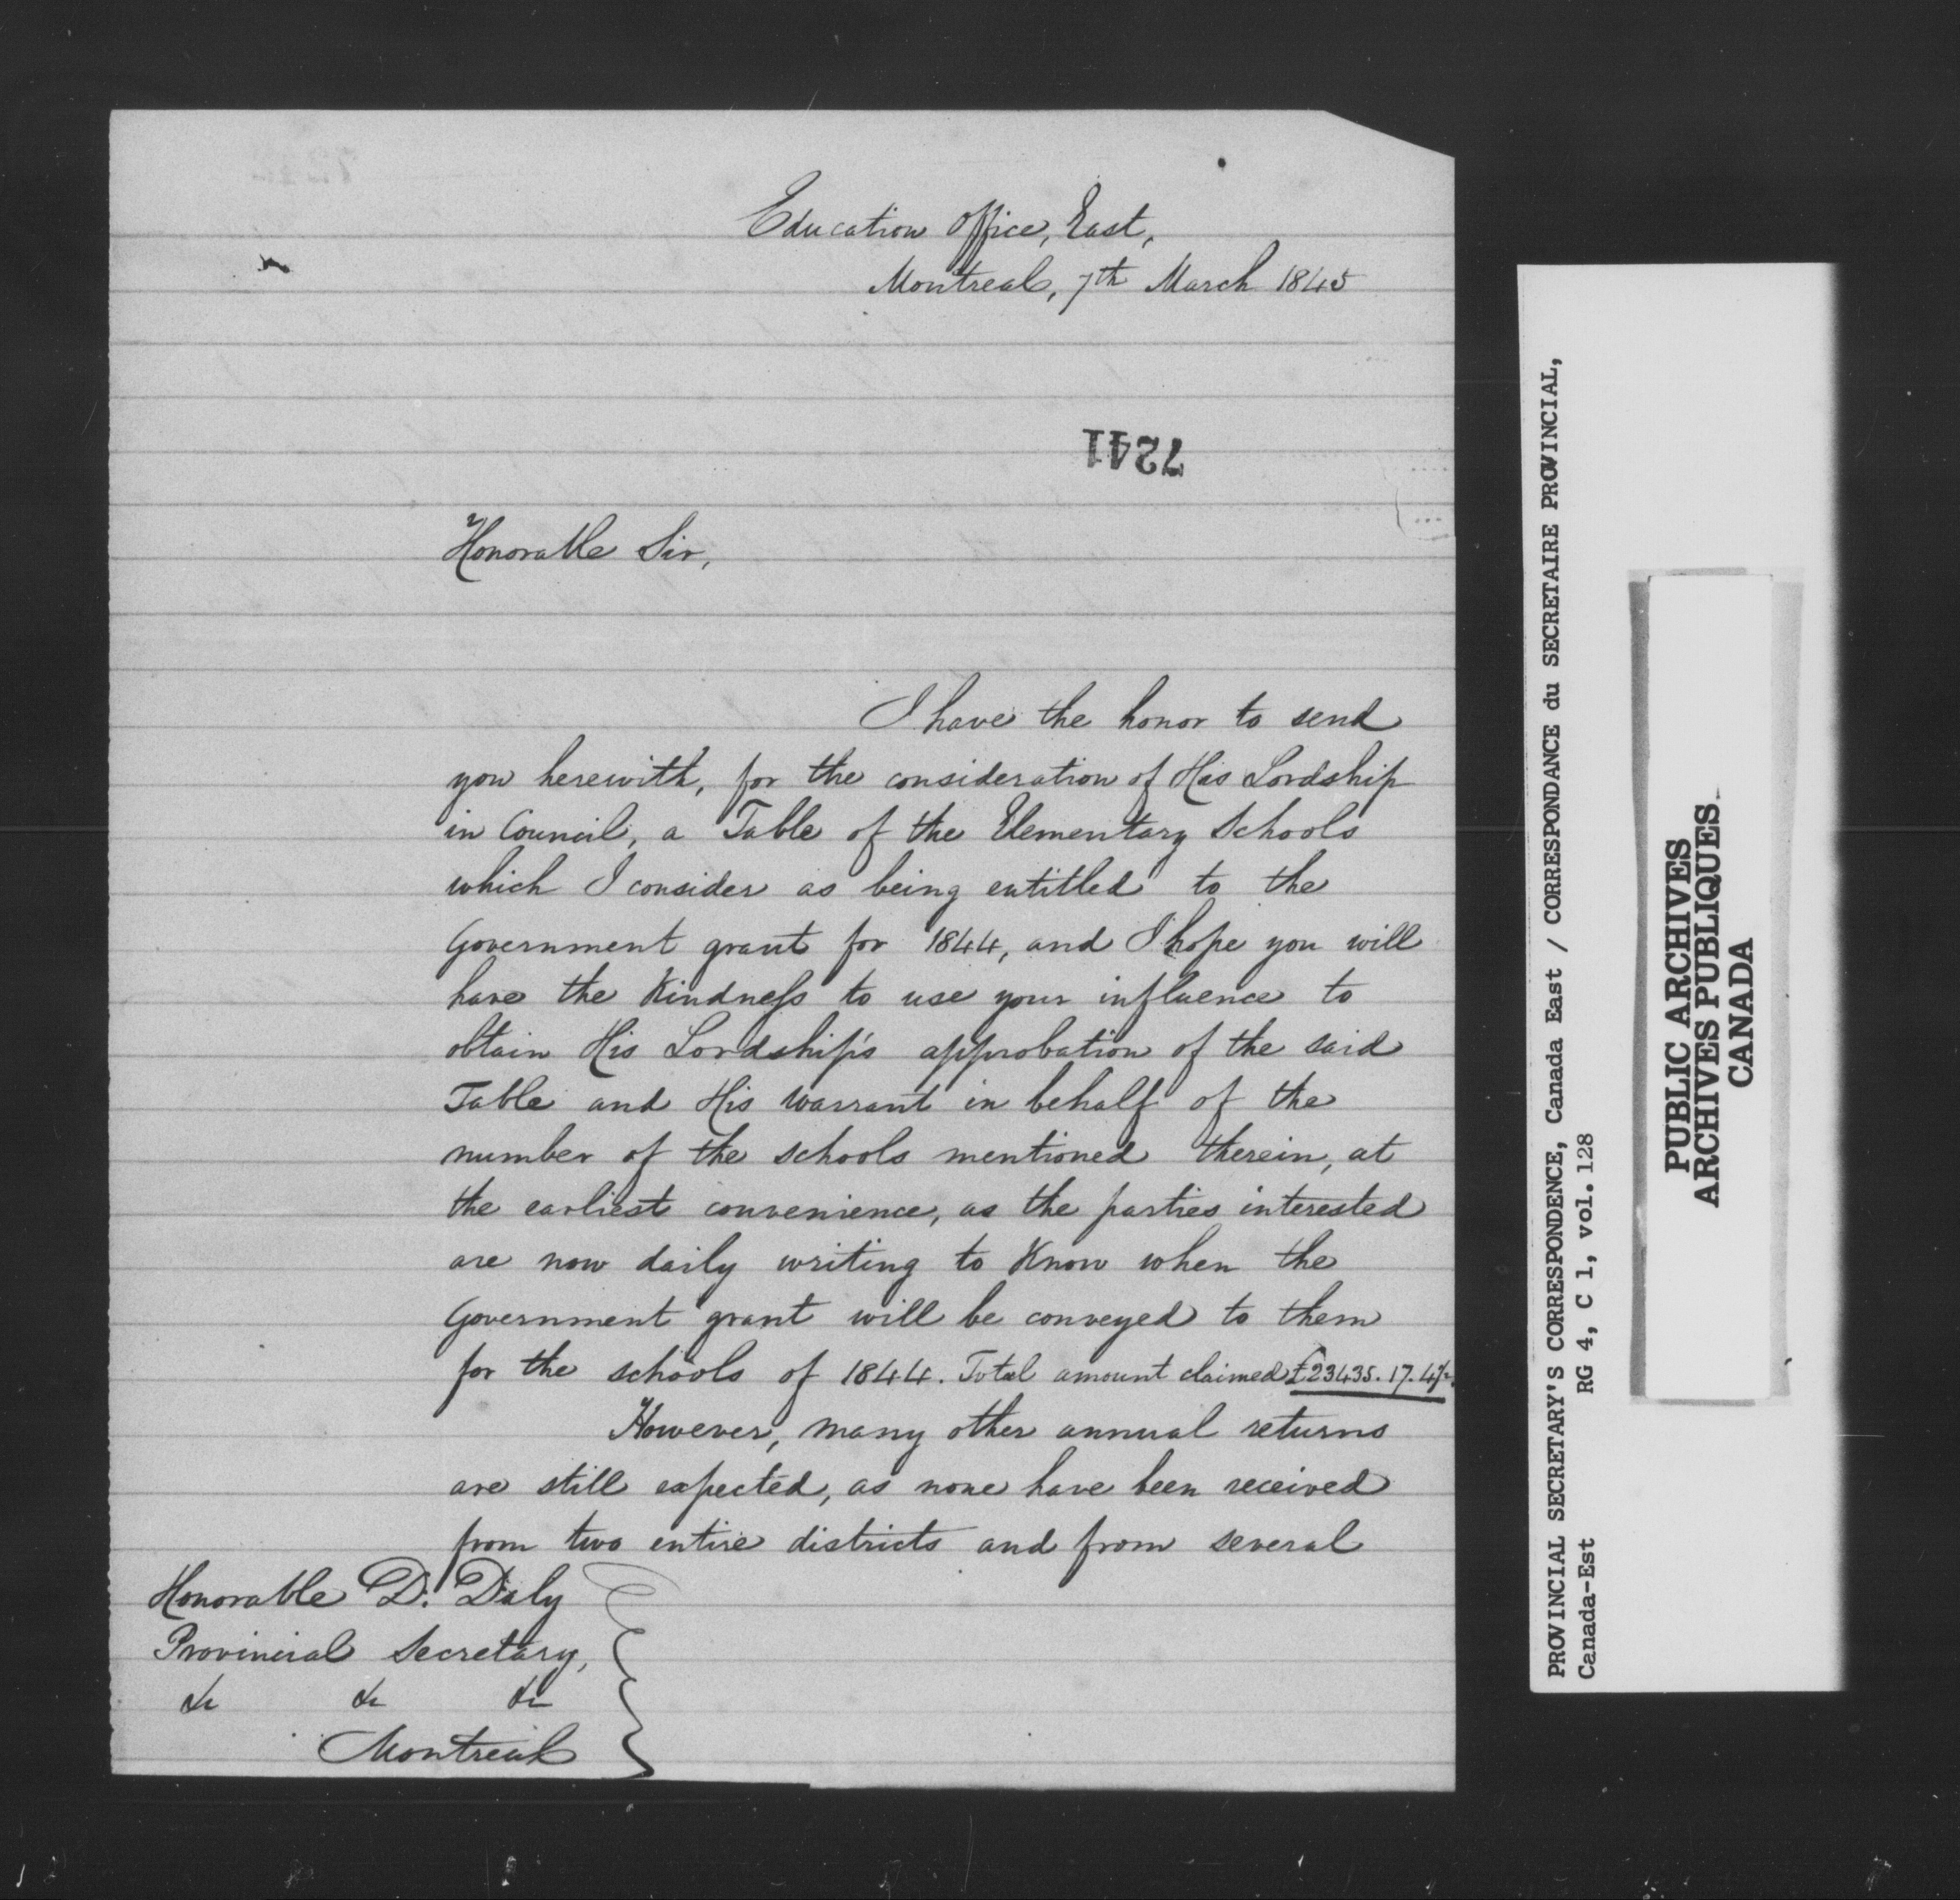 Education Office, East,
Montreal, 7th March 1845
7241
Honorable Sir,
I have the honor to send
you herewith, for the consideration of His Lordship
in Council, a Table of the Elementary Schools
which I consider as being entitled to the
Government grant for 1844, and I hope you will
have the Kindness to use your influence to
obtain His Lordship's approbation of the said
Table and His Warrant in behalf of the
number of the schools mentioned therein, at
the earliest convenience, as the parties interested
are now daily writing to Know when the
Government grant will be conveyed to them
for the schools of 1844. Total amount claimed £23435.17.4½
However, many other annual returns
are still expected, as none have been received
from two entire districts and from several
Honorable D. Daly
Provincial Secretary,
&c &c &c
Montreal
PROVINCIAL SECRETARY'S CORRESPONDENCE, Canada East / CORRESPONDANCE du SECRETAIRE PROVINCIAL,
Canada-Est RG 4, C 1, vol. 128
PUBLIC ARCHIVES
ARCHIVES PUBLIQUES
CANADA